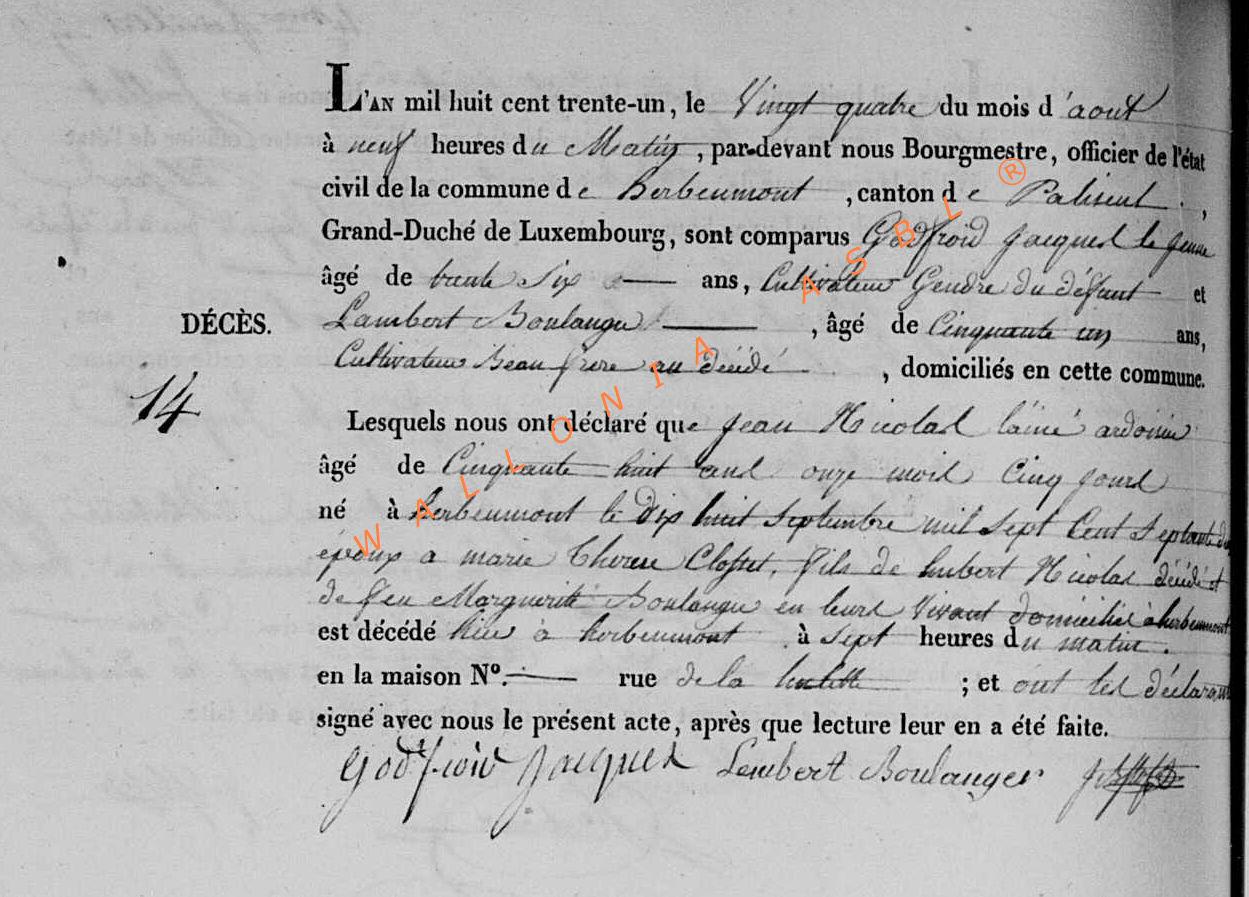 L'AN mil huit cent trente-un, le Vingt quatre du mois d'aout
à neuf heures du Matin, par-devant nous Bourgmestre, officier de l'état
civil de la commune de herbeumont, canton de Paliseul,
Grand-Duché de Luxembourg, sont comparus Godfroid Jacques le jeune
âgé de trente Six ans, Cultivateur Gendre du défunt et
DÉCÈS.
Lambert Boulanger, âgé de Cinquante un ans,
Cultivateur Beau frere au décédé, domiciliés en cette commune.
14
Lesquels nous ont déclaré que Jean Nicolas lainé ardoisier
âgé de Cinquante huit ans onze mois Cinq jours
né à herbeumont le dix huit Septembre mil Sept Cent Septante deux
epoux a marie Therese Closset, fils de hubert Nicolas décédé et
de feu Marguerite Boulanger en leurs Vivant domicilié à herbeumont
est décédé hier à herbeumont à Sept heures du matin.
en la maison N°. rue de la ; et ont les déclarans
signé avec nous le présent acte, après que lecture leur en a été faite.
Godfroid Jacques Lambert Boulanger
WALLONIA ASBL ®